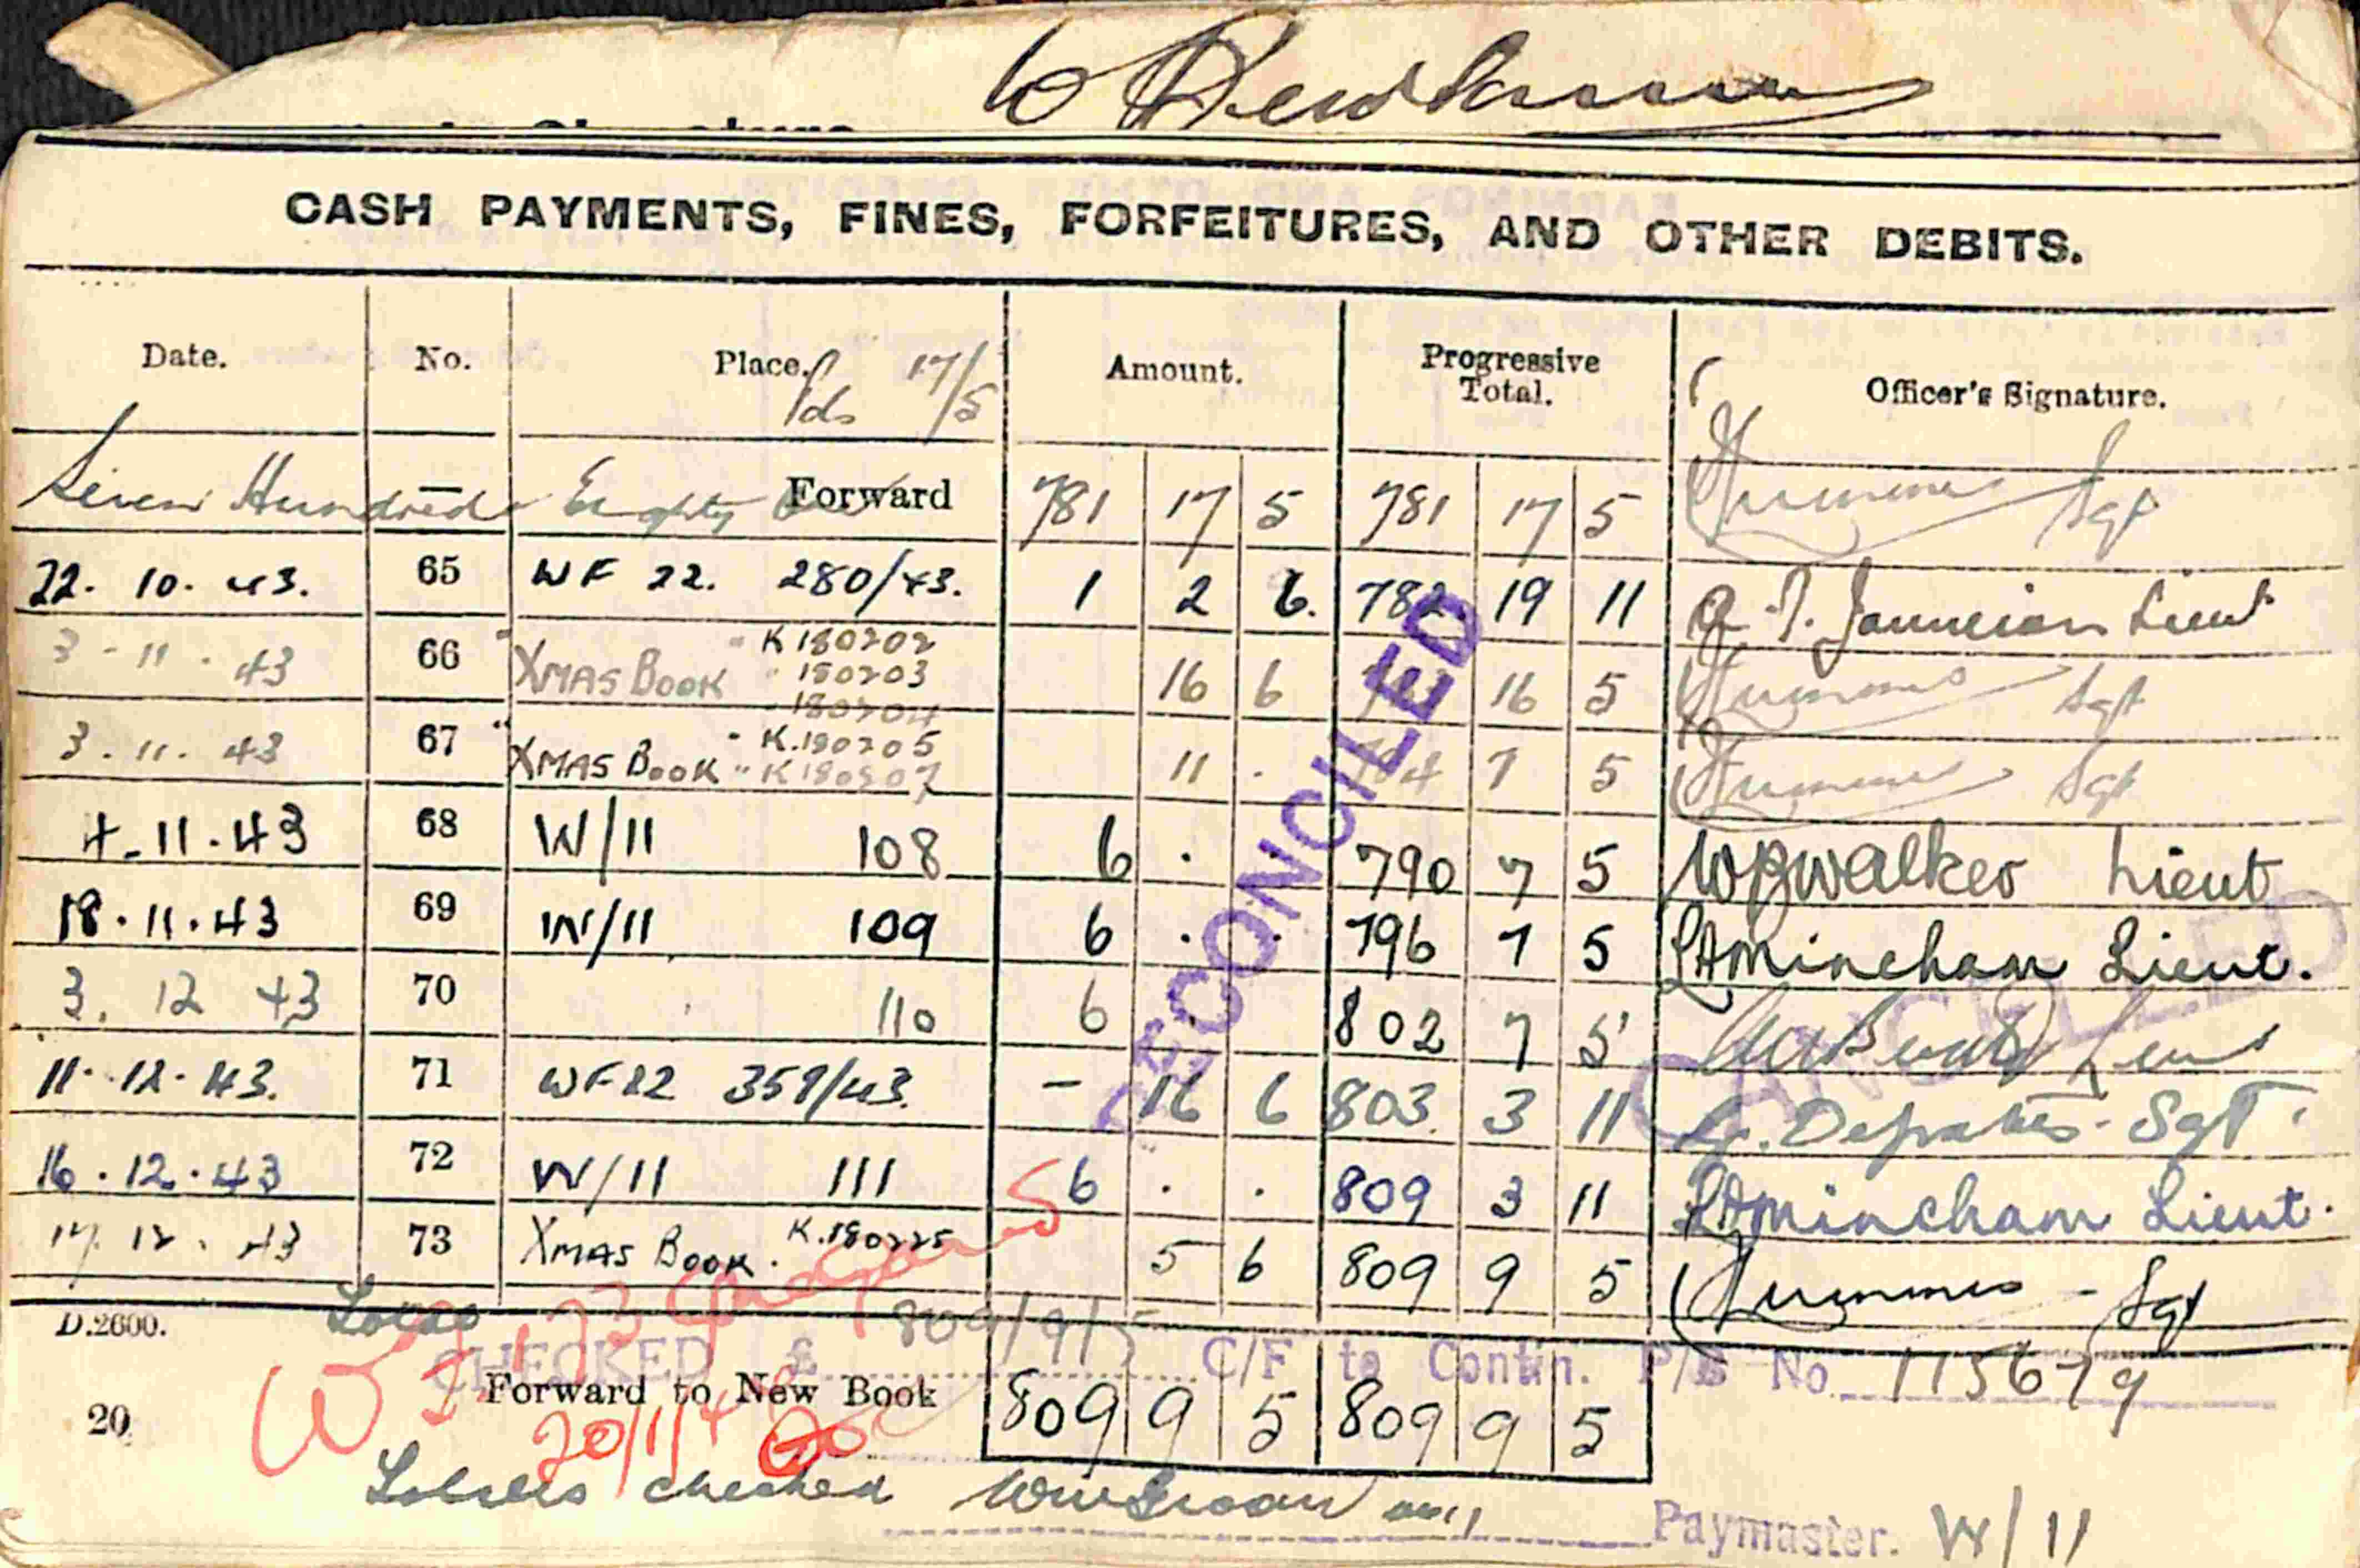 W Newham
CASH PAYMENTS, FINES, FORFEITURES, AND OTHER DEBITS.
Date. No. Place. 17/5 Amount. Progressive Total. Officer's Signature.
Seven Hundred Eighty Forward 781 17 5 781 17 5 Sgt
22. 10. 43. 65 WF 22. 280/43. 1 2 6. 782 19 11 Lieut
3 - 11 - 43 66 XMAS BOOK " K180202 " 180203 - 180204 16 6 16 5 Sgt
3. 11. 43 67 " XMAS BOOK " K.180205 " K180207 11 . 7 5 Sgt
4-11-43 68 W/11 108 6 . . 790 7 5 WBWalker Lieut
18.11.43 69 W/11 109 6 . . 796 7 5 LAMincham Lieut.
3. 12 43 70 110 6 802 7 5
11.12.43. 71 WF22 359/43. - 16 6 803. 3 11 Sgt
16.12.43 72 W/11 111 6 . . 809 3 11 LAMincham Lieut.
17. 12. 43 73 XMAS BOOK. K.180225 5 6 809 9 5 Sgt
RECONCILED
CANCELLED
D.2600.
CHECKED £ 809/9/5 C/F to Contin. P/B No. 115679
Forward to New Book 809 9 5 809 9 5
20
20/1/4
checked
Paymaster. W/11